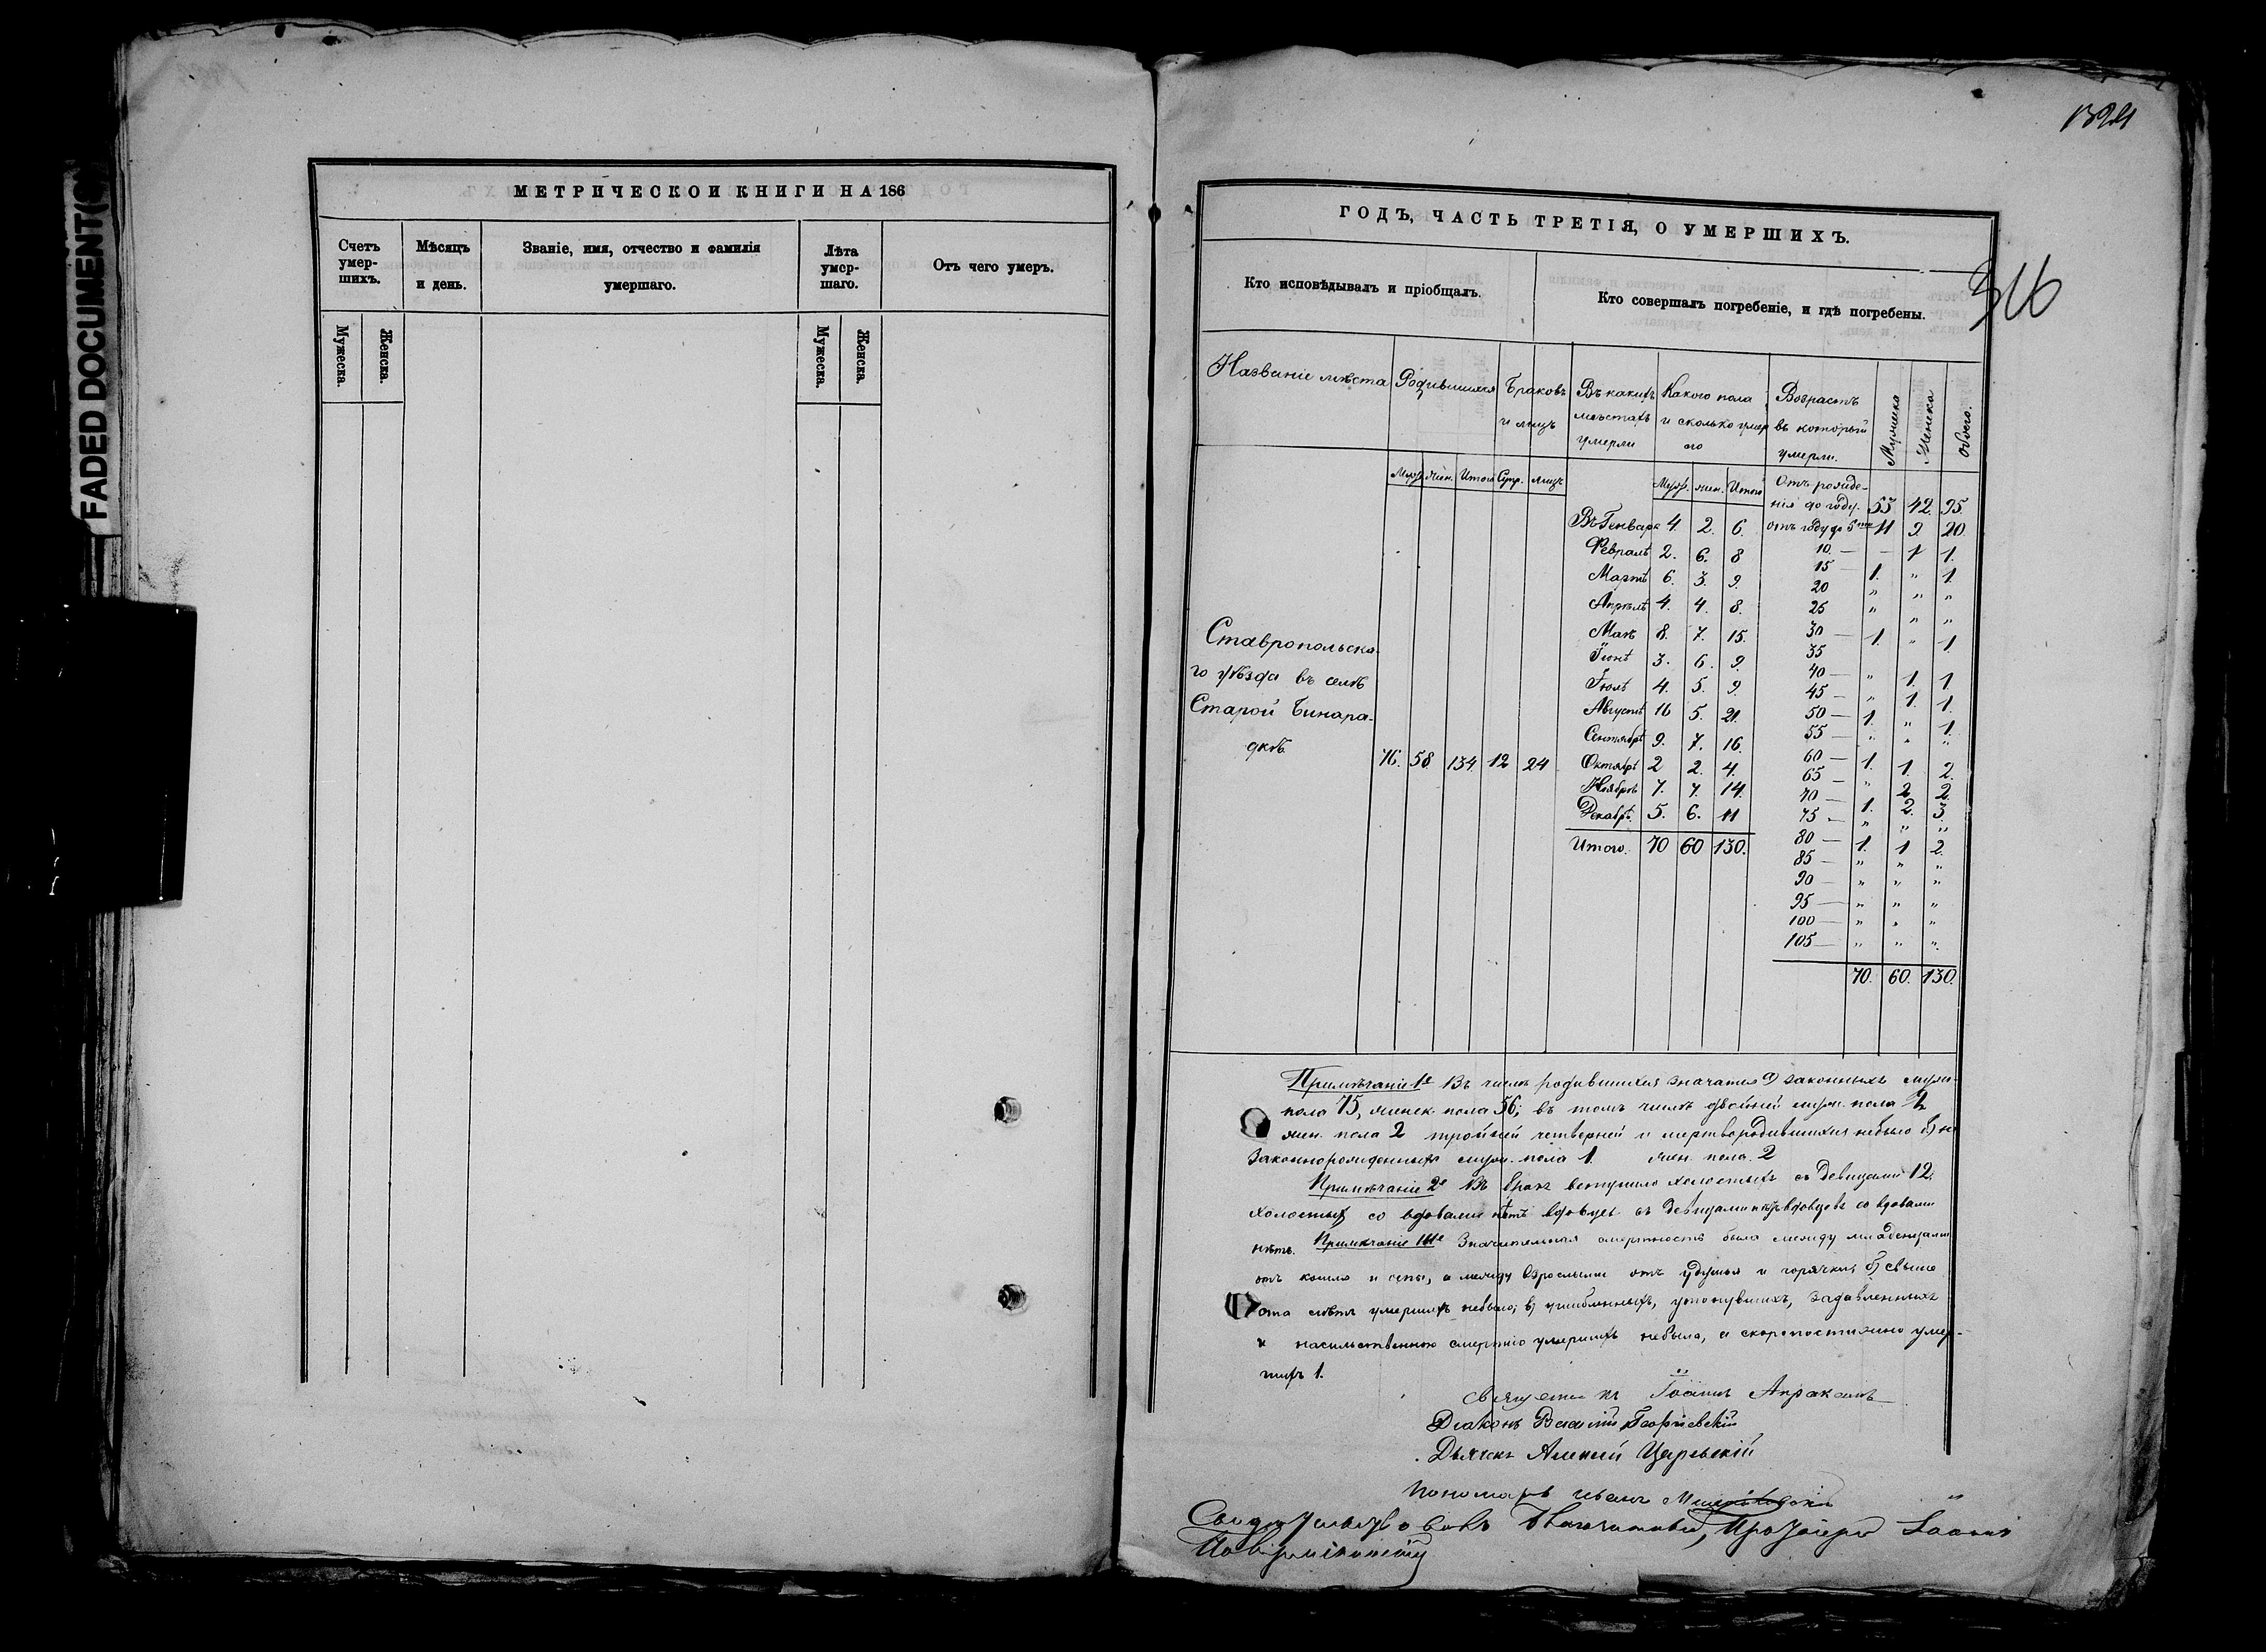 FADED DOCUMENT(
МЕТРИЧЕСКОЙ КНИГИ НА 186
Счетъ умер-шихъ.
Мѣсяцъ и день.
Званіе, имя, отчество и фамилія умершаго.
Лѣта умер-шаго.
Отъ чего умеръ.
Мужеска.
Женска.
Мужеска.
Женска.
316
ГОДЪ, ЧАСТЬ ТРЕТІЯ, О УМЕРШИХЪ.
Кто исповѣдывалъ и пріобщалъ.
Кто совершалъ погребеніе, и гдѣ погребены.
Названіе мѣста
Родившихся
Браковъ и лицъ
Въ какихъ мѣстахъ умерли
Какого пола и сколько умерло
Возрастъ въ который умерли.
Мужеска
Женска
Обоего.
Муж. жен. Итого Супр. лицъ
Муж. жен. Итого
Ставропольска-
го уѣзда въ селѣ
Старой Бинара-
дкѣ
76. 58 134. 12 24
Въ Генварѣ 4. 2. 6.
Февралѣ 2. 6. 8
Мартѣ 6. 3. 9.
Апрѣлѣ 4. 4. 8.
Маѣ 8. 7. 15.
Іюнѣ 3. 6. 9.
Іюлѣ 4. 5. 9.
Августѣ 16 5. 21.
Сентябрѣ 9. 7. 16.
Октябрѣ 2 2. 4.
Ноябрѣ 7. 7. 14.
Декабрѣ. 5. 6. 11
Итого. 70 60 130.
Отъ рожде-
нія до году. 53 42. 95.
отъ году до 5 11 9. 20.
10. — — 1 1.
15 — 1. „ 1.
20 „ „ „
25 „ „ „
30 — 1. „ 1.
35
40 — „ 1. 1
45 — „ 1. 1.
50 — 1. „ 1.
55 — „ „ „
60 — 1. 1. 2.
65 — „ 2 2.
70 — 1. 2. 3.
75 — „ „ „
80 — 1. 1 2.
85 — „ „ „
90 — „ „ „
95 — „ „ „
100 — „ „ „
105 — „ „ „
70. 60. 130.
Примѣчаніе 1е Въ числѣ родившихся значатся а) законныхъ муж.
пола 75, женск. пола 56; въ томъ числѣ двойней муж. пола
жен. пола 2 тройней четверней и мертвородившихся небыло б) не
законнорожденныхъ муж. пола 1. жен. пола. 2
Примѣчаніе 2е Въ бракъ вступило холостыхъ съ девицами 12.
холостыхъ со вдовами нѣтъ вдовцевъ съ девицами нѣтъ вдовцевъ со вдовами
нѣтъ. Примѣчаніе IIIе Значительная смертность была между младенцами
отъ кашля и оспы, а между взрослыми отъ удушья и горячки; б) свыше
ста лѣтъ умершихъ небыло; в) ушибленныхъ, утонувшихъ, задавленныхъ
и насильственною смертію умершихъ небыло, а скоропостижно умер-
шихъ 1.
Священникъ Іоаннъ Апраксинъ
Діаконъ Василій Георгіевскій
Дьячекъ Алексѣй Царевскій
Пономарь Иванъ
Свидѣтельствовалъ Благочинный, Протоіерей Іоаннъ